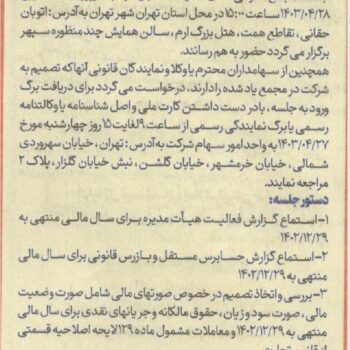 ۱۴۰۳/۰۴/۲۸ ساعت ۱۵:۰۰ در محل استان تهران شهر تهران به آدرس: اتوبان
حقانی، تقاطع همت، هتل بزرگ ارم، سالن همایش چند منظوره سپهر
برگزار می گردد حضور به هم رسانند.
همچنین از سهامداران محترم یا وکلا و نمایندگان قانونی آنها که تصمیم به
شرکت در مجمع یاد شده را دارند، درخواست می گردد برای دریافت برگ
ورود به جلسه، با در دست داشتن کارت ملی و اصل شناسنامه یا وکالتنامه
رسمی یا برگ نمایندگی رسمی از ساعت ۹ لغایت ۱۵ روز چهارشنبه مورخ
۱۴۰۳/۰۴/۲۷ به واحد امور سهام شرکت به آدرس: تهران، خیابان سهروردی
شمالی، خیابان خرمشهر، خیابان گلشن، نبش خیابان گلزار، پلاک ۲
مراجعه نمایند.
دستور جلسه:
۱- استماع گزارش فعالیت هیأت مدیره برای سال مالی منتهی به
۱۴۰۲/۱۲/۲۹
۲- استماع گزارش حسابرس مستقل و بازرس قانونی برای سال مالی
منتهی به ۱۴۰۲/۱۲/۲۹
۳- بررسی و اتخاذ تصمیم در خصوص صورتهای مالی شامل صورت وضعیت
مالی، صورت سود و زیان، حقوق مالکانه و جریانهای نقدی برای سال مالی
منتهی به ۱۴۰۲/۱۲/۲۹ و معاملات مشمول ماده ۱۲۹ لایحه اصلاحیه قسمتی
از قانون تجارت